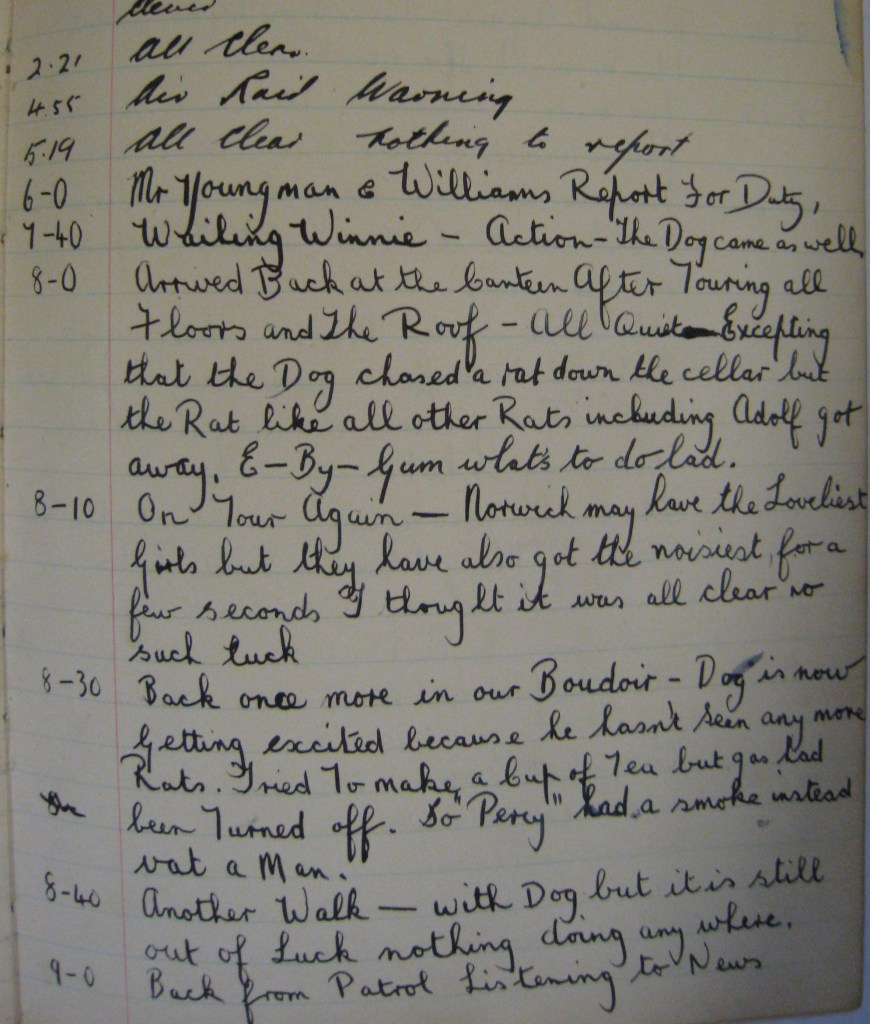 2.21 All Clear.
4.55 Air Raid Warning
5.19 All Clear nothing to report
6-0 Mr Youngman & Williams Report For Duty,
7-40 Wailing Winnie - Action - The Dog came as well,
8-0 Arrived Back at the Canteen After Touring all
Floors and The Roof - All Quiet Excepting
that the Dog chased a rat down the cellar but
the Rat like all other Rats including Adolf got
away. E-By-Gum what's to do lad.
8-10 On Tour Again — Norwich may have the Loveliest
Girls but they have also got the noisiest, for a
few seconds I thought it was all clear no
such luck
8-30 Back once more in our Boudoir - Dog is now
Getting excited because he hasn't seen any more
Rats. Tried To make a Cup of Tea but gas had
been Turned off. So "Percy" had a smoke instead
vat a Man.
8-40 Another Walk — with Dog but it is still
out of Luck nothing doing any where.
9-0 Back from Patrol Listening to News